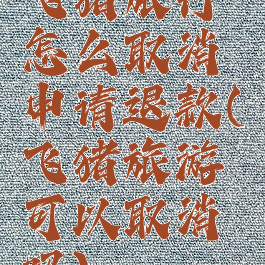 飞猪旅行
怎么取消
申请退款(
飞猪旅游
可以取消
吗)